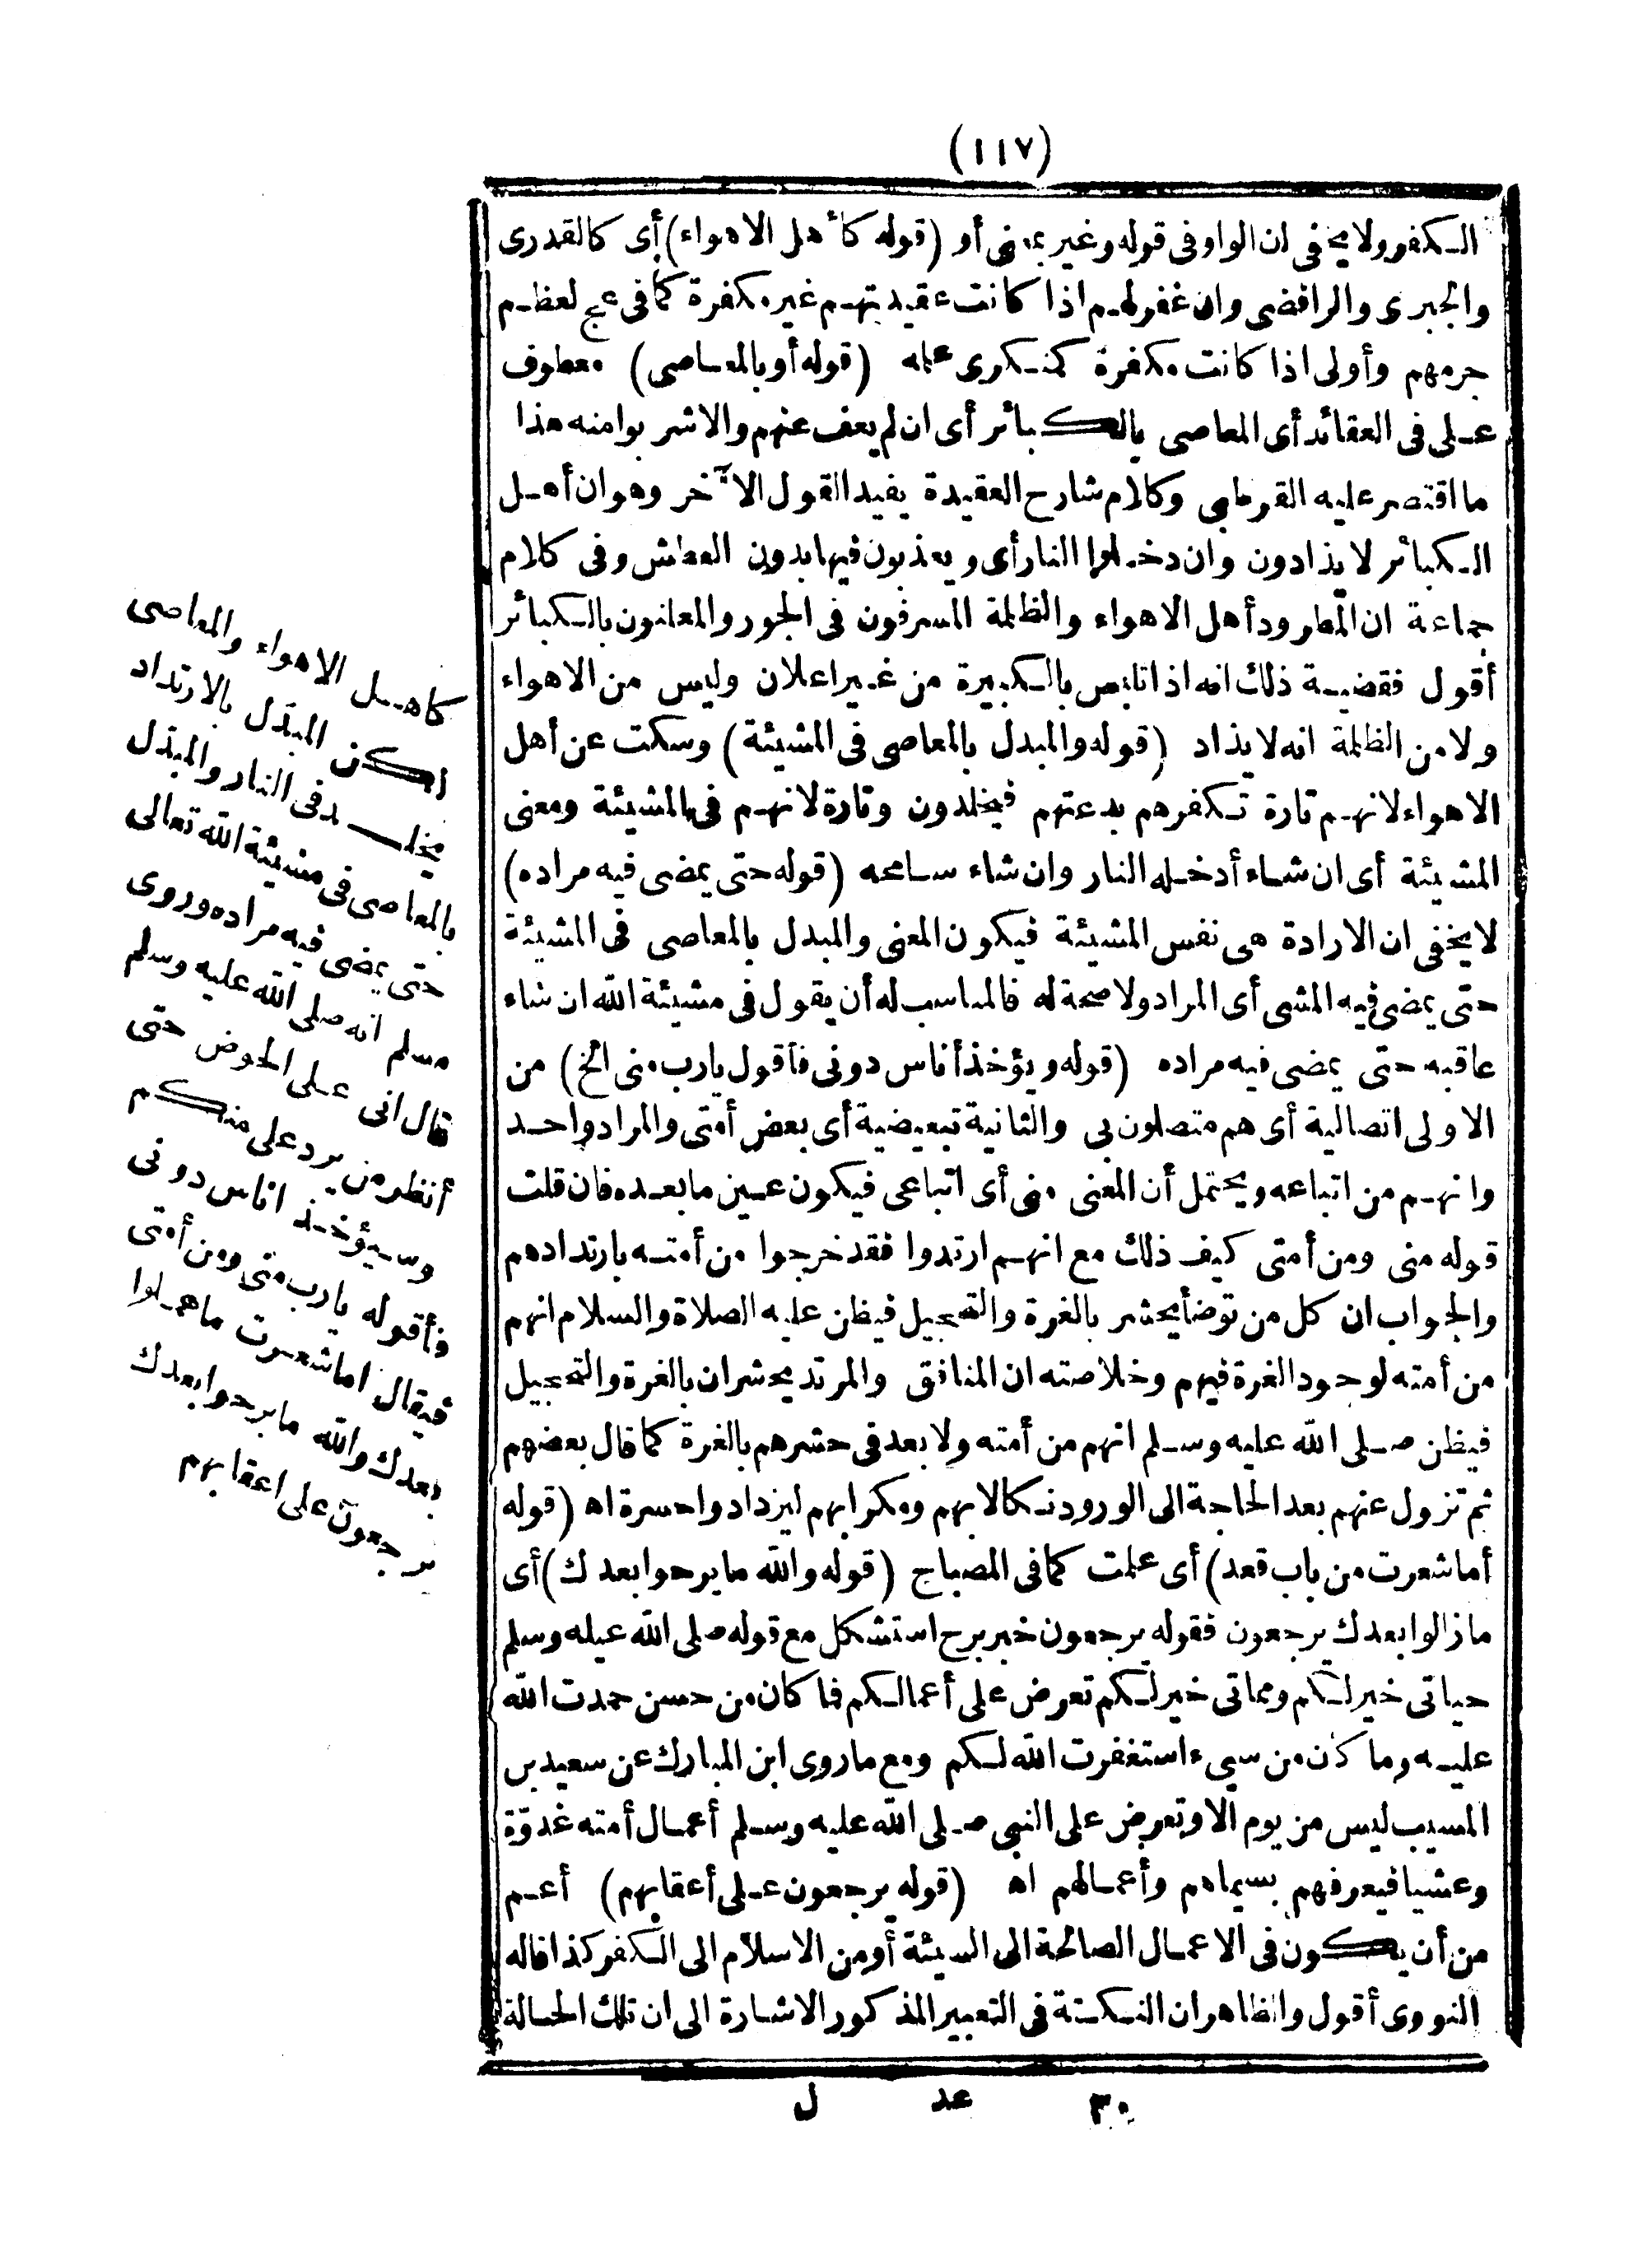 (١١٧)
الكفر ولا يخفى ان الواو فى قوله وغير بمعنى أو (قوله كأهل الاهواء) أى كالقدرى
والجبرى والرافضى وان غفر لهم اذا كانت عقيدتهم غير مكفرة كما فى عج لعظم
جرمهم وأولى اذا كانت مكفرة كمنكرى علمه (قوله أو بالمعاصى) معطوف
على فى العقائد أى المعاصى بالكبائر أى ان لم يعف عنهم والا شربوا منه هذا
ما اقتصر عليه القرطبى وكلام شارح العقيدة يفيد القول الآخر وهو ان أهل
الكبائر لا يذادون وان دخلوا النار أى ويعذبون فيها بدون العطش وفى كلام
جماعة ان المطرود أهل الاهواء والظلمة المسرفون فى الجور والمعلنون بالكبائر
أقول فقضية ذلك انه اذا تلبس بالكبيرة من غير اعلان وليس من الاهواء
ولا من الظلمة انه لا يذاد (قوله والمبدل بالمعاصى فى المشيئة) وسكت عن أهل
الاهواء لانهم تارة تكفرهم بدعتهم فيخلدون وتارة لا نهم فى المشيئة ومعنى
المشيئة أى ان شاء أدخله النار وان شاء سامحه (قوله حتى يمضى فيه مراده)
لا يخفى ان الارادة هى نفس المشيئة فيكون المعنى والمبدل بالمعاصى فى المشيئة
حتى يمضى فيه المشى أى المراد ولا صحة له فالمناسب له أن يقول فى مشيئة الله ان شاء
عاقبه حتى يمضى فيه مراده (قوله ويؤخذ أناس دونى فأقول يارب منى الخ) من
الاولى اتصالية أى هم متصلون بى والثانية تبعيضية أى بعض أمتى والمراد واحد
وانهم من اتباعه ويحتمل أن المعنى منى أى اتباعى فيكون عين ما بعده فان قلت
قوله منى ومن أمتى كيف ذلك مع انهم ارتدوا فقد خرجوا من أمته بارتدادهم
والجواب ان كل من توضأ يحشر بالغرة والتحجيل فيظن عليه الصلاة والسلام انهم
من أمته لوجود الغرة فيهم وخلاصته ان المنافق والمرتد يحشران بالغرة والتحجيل
فيظن صلى الله عليه وسلم انهم من أمته ولا بعد فى حشرهم بالغرة كما قال بعضهم
ثم تزول عنهم بعد الحاجة الى الورود نكالا بهم ومكرا بهم ليزدادوا حسرة اه (قوله
أما شعرت من باب قعد) أى علمت كما فى المصباح (قوله والله ما برحوا بعدك) أى
ما زالوا بعدك يرجعون فقوله يرجعون خبر برح استشكل مع قوله صلى الله عيله وسلم
حياتى خير لكم ومماتى خير لكم تعرض على أعمالكم فما كان من حسن حمدت الله
عليه وما كان من سيىء استغفرت الله لكم ومع ما روى ابن المبارك عن سعيد بن
المسيب ليس من يوم الا وتعرض على النبى صلى الله عليه وسلم أعمال أمته غدوّة
وعشيا فيعرفهم بسيماهم وأعمالهم اه (قوله يرجعون على أعقابهم) أعم
من أن يكون فى الاعمال الصالحة الى السيئة أو من الاسلام الى الكفر كذا قاله
النووى أقول والظاهر ان النكتة فى التعبير المذكور الاشارة الى ان تلك الحالة
٣٠ عد ل
كاهل الاهواء والمعاصى
لكن المبدّل بالارتداد
يخلد فى النار والمبدّل
بالمعاصى فى مشيئة الله تعالى
حتى يمضى فيه مراده وروى
مسلم انه صلى الله عليه وسلم
قال انى على الحوض حتى
أنظر من يرد على منكم
وسيؤخذ اناس دونى
فأقوله يارب منى ومن أمتى
فيقال اما شعرت ما عملوا
بعدك والله ما برحوا بعدك
يرجعون على اعقابهم